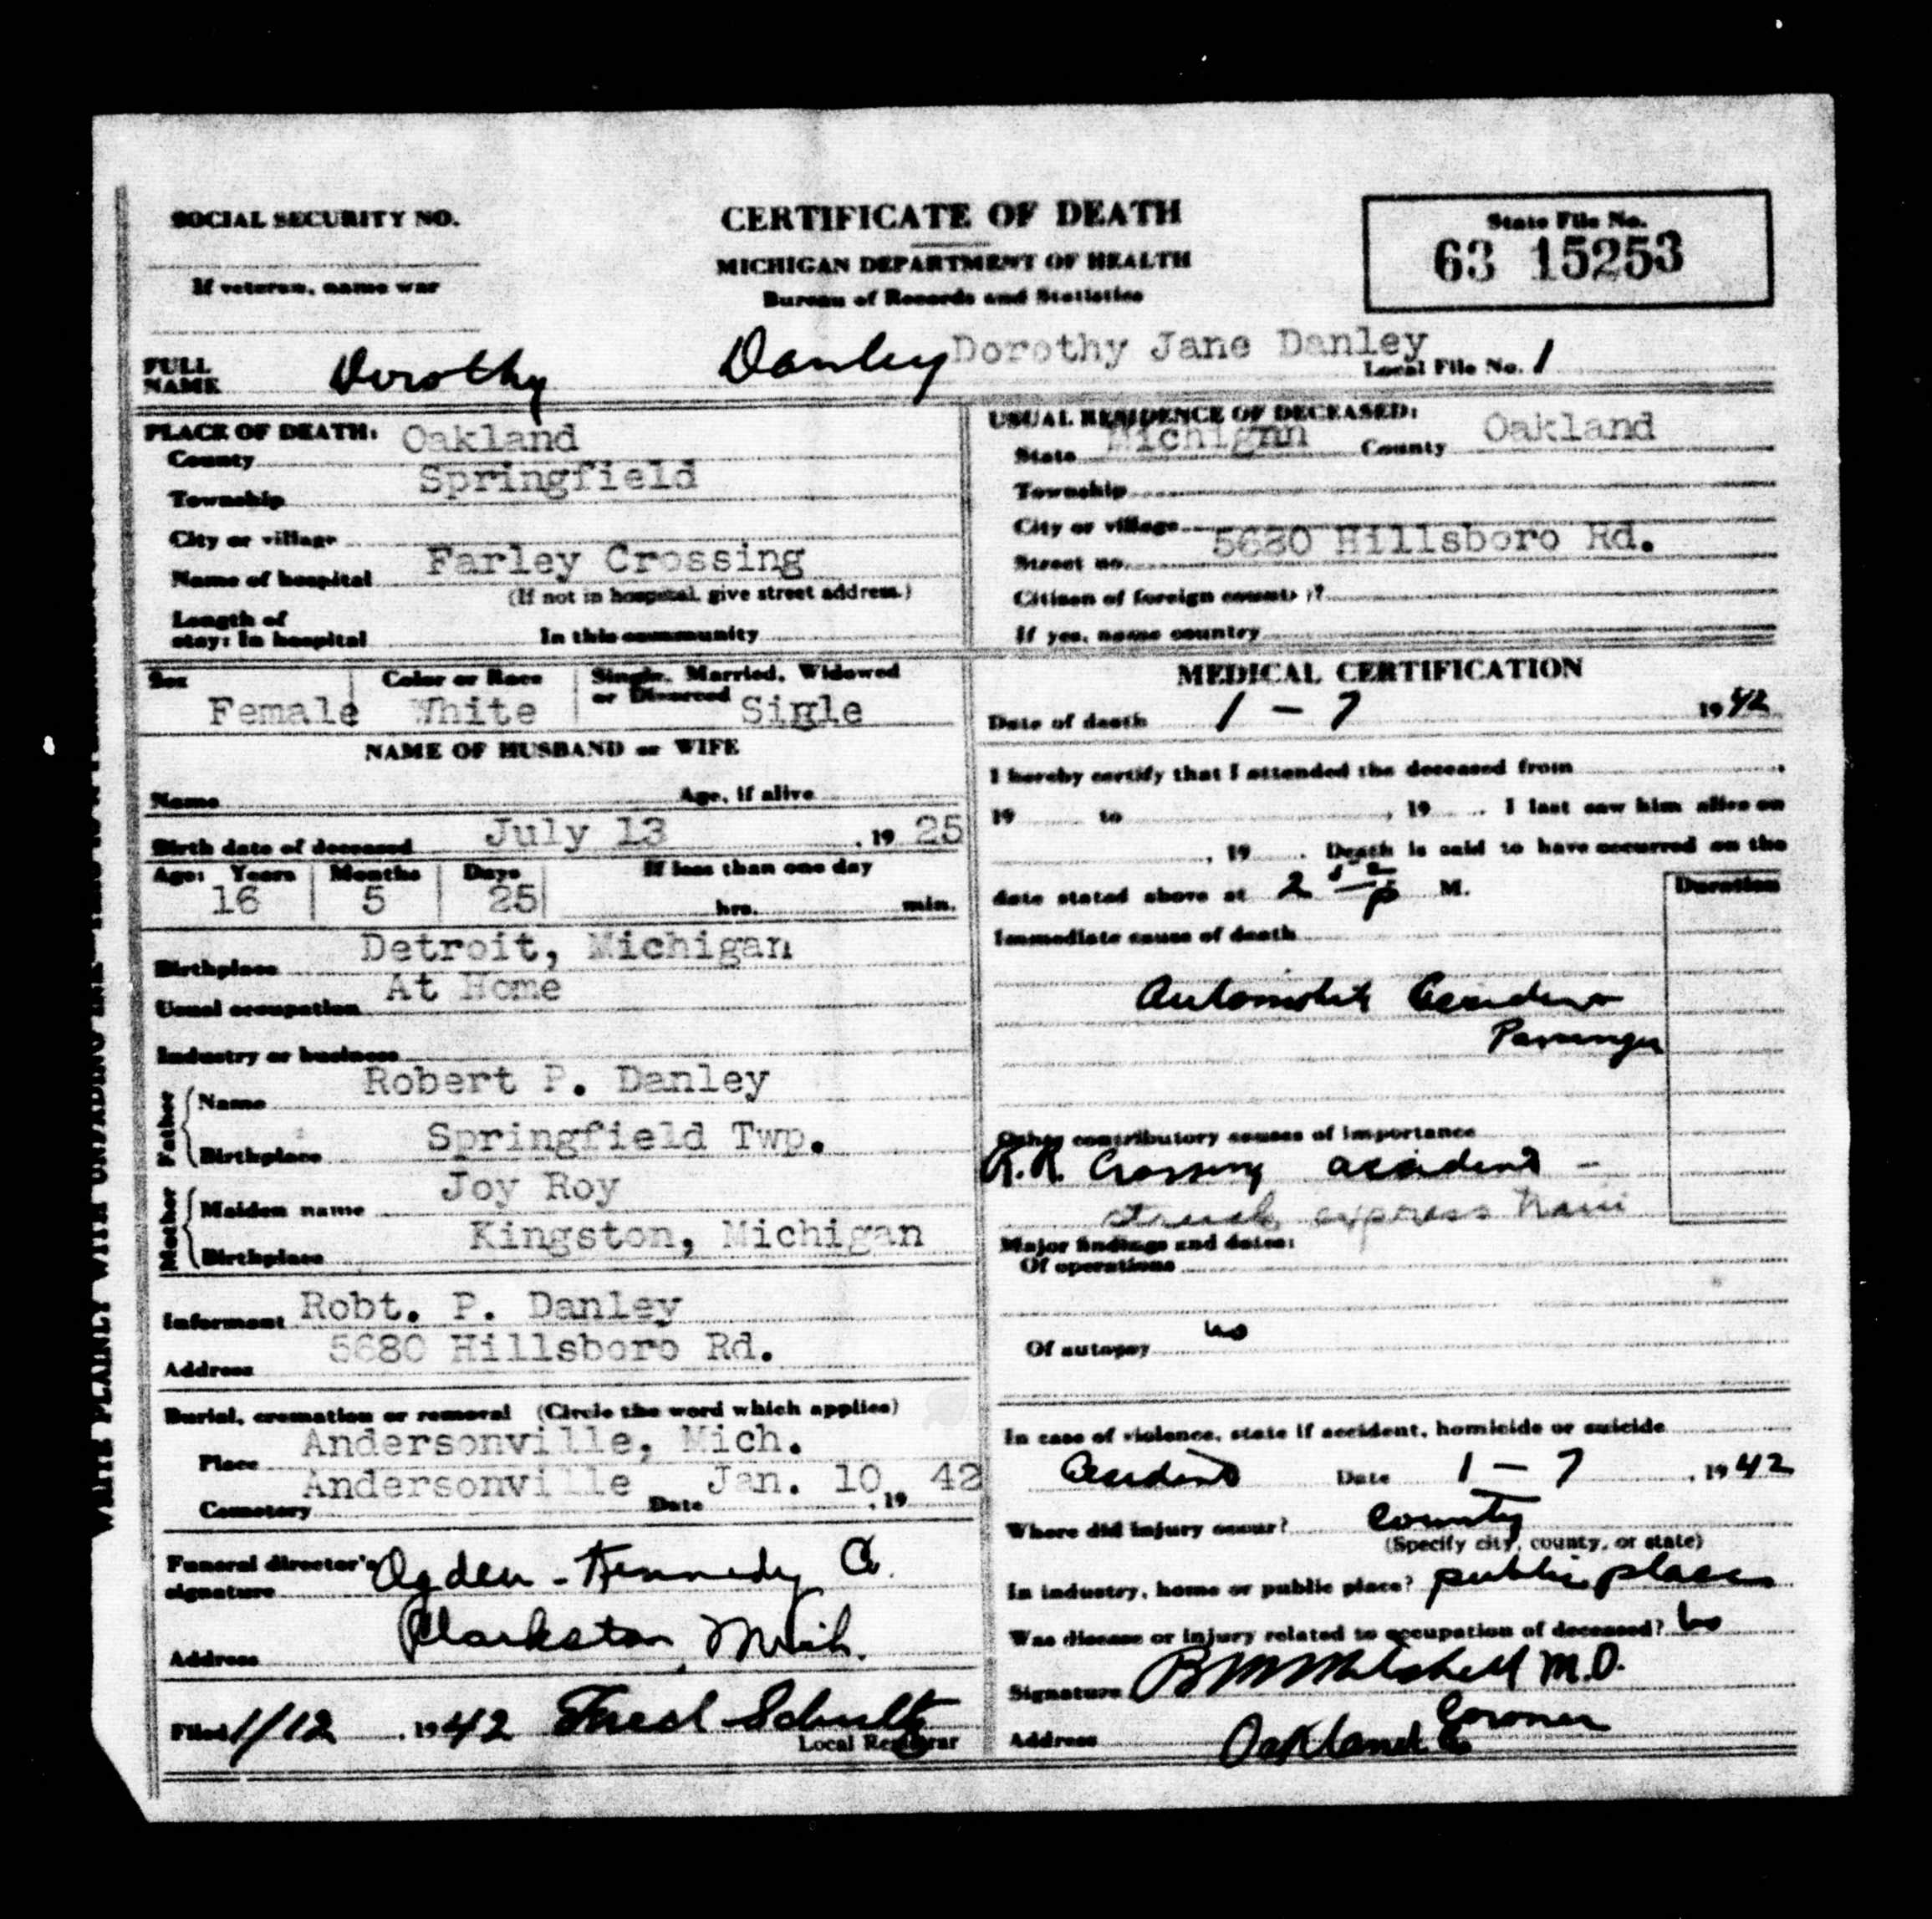 SOCIAL SECURITY NO.
If veteran, name war
CERTIFICATE OF DEATH
MICHIGAN DEPARTMENT OF HEALTH
Bureau of Records and Statistics
State File No.
63 15253
FULL NAME Dorothy Danley Dorothy Jane Danley
Local File No. 1
PLACE OF DEATH:
County Oakland
Township Springfield
City or village
Name of hospital Farley Crossing
(If not in hospital, give street address.)
Length of stay: In hospital In this community
USUAL RESIDENCE OF DECEASED:
State Michigan County Oakland
Township
City or village
Street no. 5680 Hillsboro Rd.
Citizen of foreign country?
If yes, name country
Sex Female
Color or Race White
Single, Married, Widowed or Divorced Sigle
NAME OF HUSBAND or WIFE
Name Age, if alive
Birth date of deceased July 13, 19 25
Age: Years Months Days If less than one day
16 5 25 hrs. min.
Birthplace Detroit, Michigan
Usual occupation At Home
Industry or business
Father Name Robert P. Danley
Birthplace Springfield Twp.
Mother Maiden name Joy Roy
Birthplace Kingston, Michigan
Informant Robt. P. Danley
Address 5680 Hillsboro Rd.
Burial, cremation or removal (Circle the word which applies)
Place Andersonville, Mich.
Cemetery Andersonville Date Jan. 10, 19 42
Funeral director's signature Ogden - Kennedy Co.
Address Clarkston, Mich.
Filed 1/12, 1942 Fred Schultz
Local Registrar
MEDICAL CERTIFICATION
Date of death 1 - 7 1942
I hereby certify that I attended the deceased from ,
19 to , 19 . I last saw him alive on
, 19 . Death is said to have occurred on the
date stated above at 2 P M.
Duration
Immediate cause of death
Automobile Accident
Passenger
Other contributory causes of importance
R.R. Crossing accident -
struck express train
Major findings and dates:
Of operations
Of autopsy no
In case of violence, state if accident, homicide or suicide
Accident Date 1 - 7, 1942
Where did injury occur? County
(Specify city, county, or state)
In industry, home or public place? public place
Was disease or injury related to occupation of deceased? no
Signature B M Mitchell M.D.
Coroner
Address Oakland Co
WRITE PLAINLY WITH UNFADING INK